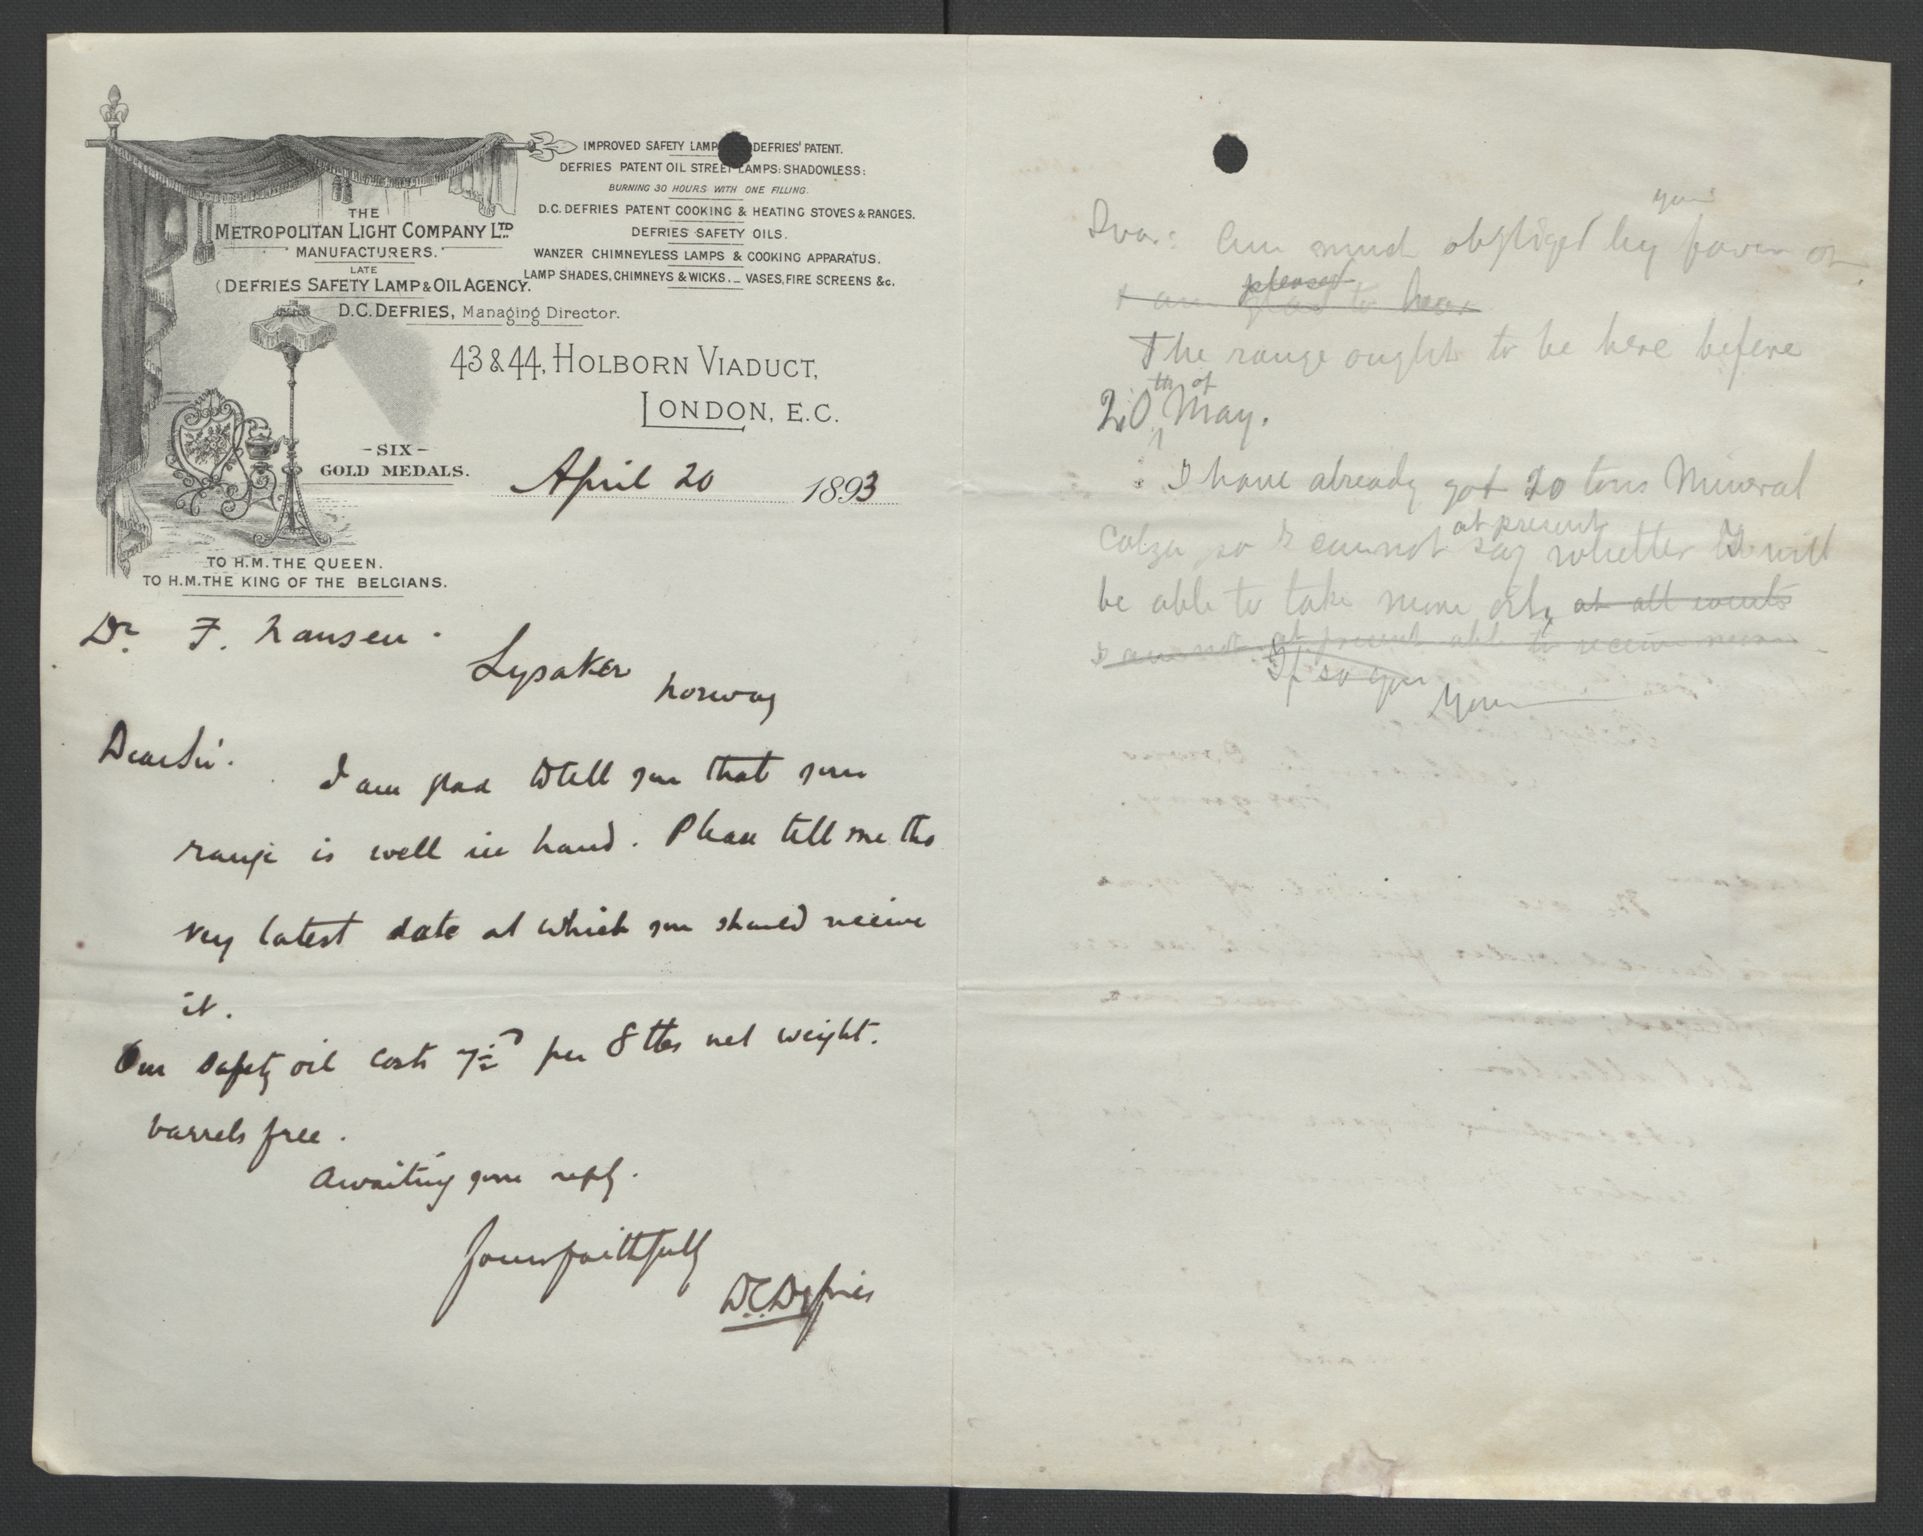 IMPROVED SAFETY LAMP DEFRIES' PATENT.
DEFRIES PATENT OIL STREET LAMPS: SHADOWLESS:
BURNING 30 HOURS WITH ONE FILLING.
D.C. DEFRIES PATENT COOKING & HEATING STOVES & RANGES.
DEFRIES SAFETY OILS.
WANZER CHIMNEYLESS LAMPS & COOKING APPARATUS.
LAMP SHADES, CHIMNEYS & WICKS. _ VASES, FIRE SCREENS &c.
THE
METROPOLITAN LIGHT COMPANY LTD.
MANUFACTURERS.
LATE
(DEFRIES SAFETY LAMP & OIL AGENCY.
D.C. DEFRIES, Managing Director.
43 & 44, HOLBORN VIADUCT,
LONDON, E.C.
- SIX -
GOLD MEDALS.
April 20 1893
TO H.M. THE QUEEN.
TO H.M. THE KING OF THE BELGIANS.
Dr. F. Nansen.
Lysaker
Norway
Dear Sir.
I am glad to tell you that your
range is well in hand. Please tell me the
very latest date at which you should receive
it.
Our safety oil costs 7½D per 8 lbs net weight.
barrels free.
Awaiting your reply.
Yours faithfully
D.C. Defries
your
Am much obgliged by favour of
pleased
& am glad to hear
The range ought to be here before
20th of May.
I have already got 20 tons Mineral
at present
Colza so I cannot say whether I will
be able to take more oil, at all events
I am not at present able to receive more
If so you
Your